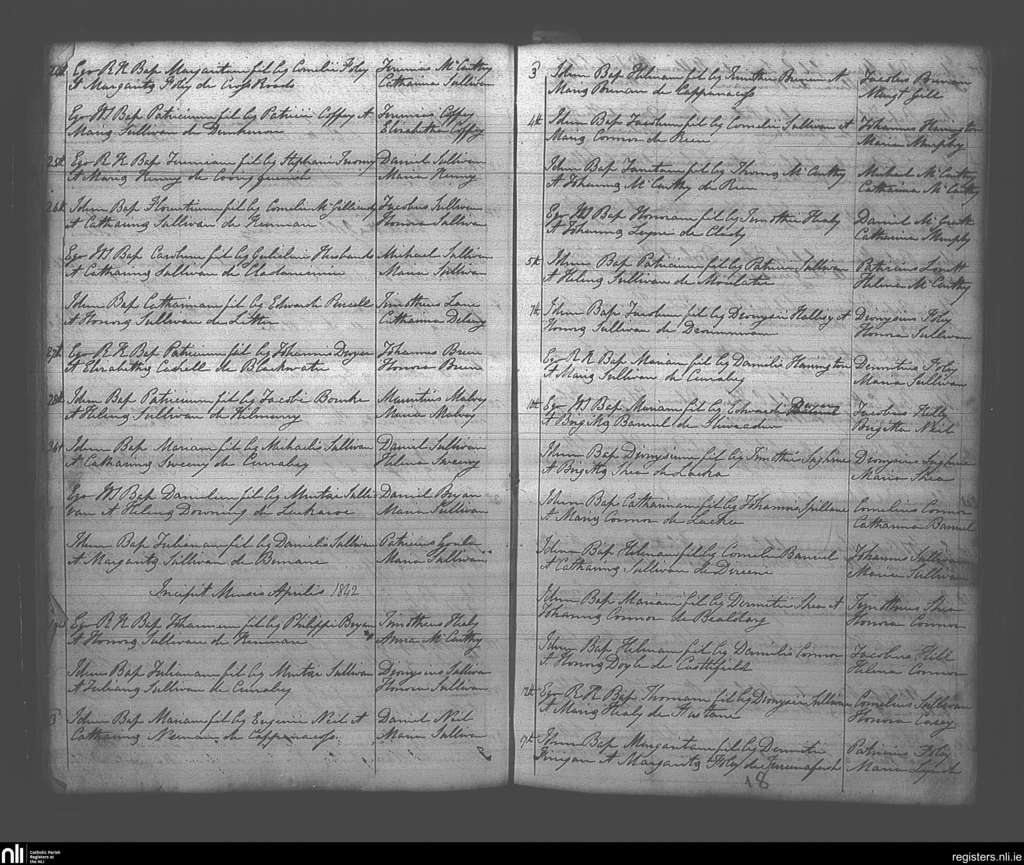 24th Ego R K Bap Margaritam fil leg Cornelii Foley
Et Margarita Foley de Cross Roads
Jeremias McCarthy
Catharina Sullivan
Ego WS Bap Patricium fil leg Patricii Coffey Et
Maria Sullivan de Dunkerron
Jeremias Coffey
Elizabetha Coffey
25th Ego R K Bap Jeremiam fil leg Stephani
Et Maria Kenny de
Daniel Sullivan
Maria Kenny
26th Idem Bap Florentium fil leg Cornelii McGillicuddy
Et Catharina Sullivan de Kenmare
Jacobus Sullivan
Honora Sullivan
Ego WS Bap Carolum fil leg Gulielmi Husbands
Et Catharina Sullivan de
Michael Sullivan
Maria Sullivan
Idem Bap Catharinam fil leg Edwardi Purcell
Et Honora Sullivan de Litter
Timotheus Lane
Catharina Delany
27th Ego R K Bap Patricium fil leg Johannis Dwyer
Et Elizabetha Cashell de Blackwater
Johannes Brien
Honora Brien
28th Idem Bap Patricium fil leg Jacobi Bourke
Et Helena Sullivan de Kilmurry
Mauritius Malvey
Maria Malvey
31st Idem Bap Mariam fil leg Michaelis Sullivan
Et Catharina Sweeny de Currabey
Daniel Sullivan
Helena Sweeny
Ego WS Bap Danielem fil leg Murtai Sulli
van Et Helena Downing de Lackaroe
Daniel Bryan
Maria Sullivan
Idem Bap Julianam fil leg Danielis Sullivan
Et Margarita Sullivan de Bunane
Patricius
Maria Sullivan
Incipit Mensis Aprilis 1842
Ego R K Bap Johannem fil leg Philippi Bryan
Et Honora Sullivan de Kenmare
Timotheus Healy
Anna McCarthy
Idem Bap Julianam fil leg Murtai Sullivan
Et Juliana Sullivan de Currabey
Dionysius Sullivan
Honora Sullivan
3 Idem Bap Mariam fil leg Eugenii Neil Et
Catharina de Cappanacuss
Daniel Neil
Maria Sullivan
3 Idem Bap Helenam fil leg Timothei Brenan Et
Maria Brenan de Cappanacuss
Jacobus Brenan
Margt Gill
4th Idem Bap Jacobum fil leg Cornelii Sullivan Et
Maria Connor de Reen
Johannes Harington
Maria Murphy
Idem Bap fil leg Thoma McCarthy
Et Johanna McCarthy de Reen
Michael McCarthy
Catharina McCarthy
Ego WS Bap Honoram fil leg Timothei Healy
Et Johanna Layne de Clady
Daniel McCarthy
Catharina Murphy
5th Idem Bap Patricium fil leg Patricii Sullivan
Et Helena Sullivan de
Patricius Lovett
Helena McCarthy
7th Idem Bap Jacobum fil leg Dionysii Hallisy Et
Honora Sullivan de
Dionysius Foley
Honora Sullivan
Ego R K Bap Mariam fil leg Danielis Harrington
Et Maria Sullivan de Currabey
Demetrius Foley
Maria Sullivan
10th Ego WS Bap Mariam fil leg Edwardi
Et Brigitta Barrual de
Jacobus Hely
Brigitta Neil
Idem Bap Dionysium fil leg Timothei Saghrue
Et Brigitta Shea de Lacka
Dionysius Saghrue
Maria Shea
Idem Bap Catharinam fil leg Johannis Spillane
Et Maria Connor de Lacka
Cornelius Connor
Catharina Barruel
Idem Bap Helenam fil leg Cornelii Barruel
Et Catharina Sullivan de Dereene
Johannes Sullivan
Maria Sullivan
Idem Bap Mariam fil leg Demetri Shea Et
Johanna Connor de
Timotheus Shea
Honora Connor
Idem Bap Helenam fil leg Danielis Connor
Et Honora Doyle de Castlefield
Jacobus Hill
Helena Connor
12th Ego R K Bap Thomam fil leg Dionysii Sullivan
Et Maria Healy de
Cornelius Sullivan
Honora Casey
17th Idem Bap Margaritam fil leg Demetri
Finegan Et Margarita Foley de
Patricius Foley
Maria Lynch
18
nli
Catholic Parish
Registers at
the NLI
registers.nli.ie